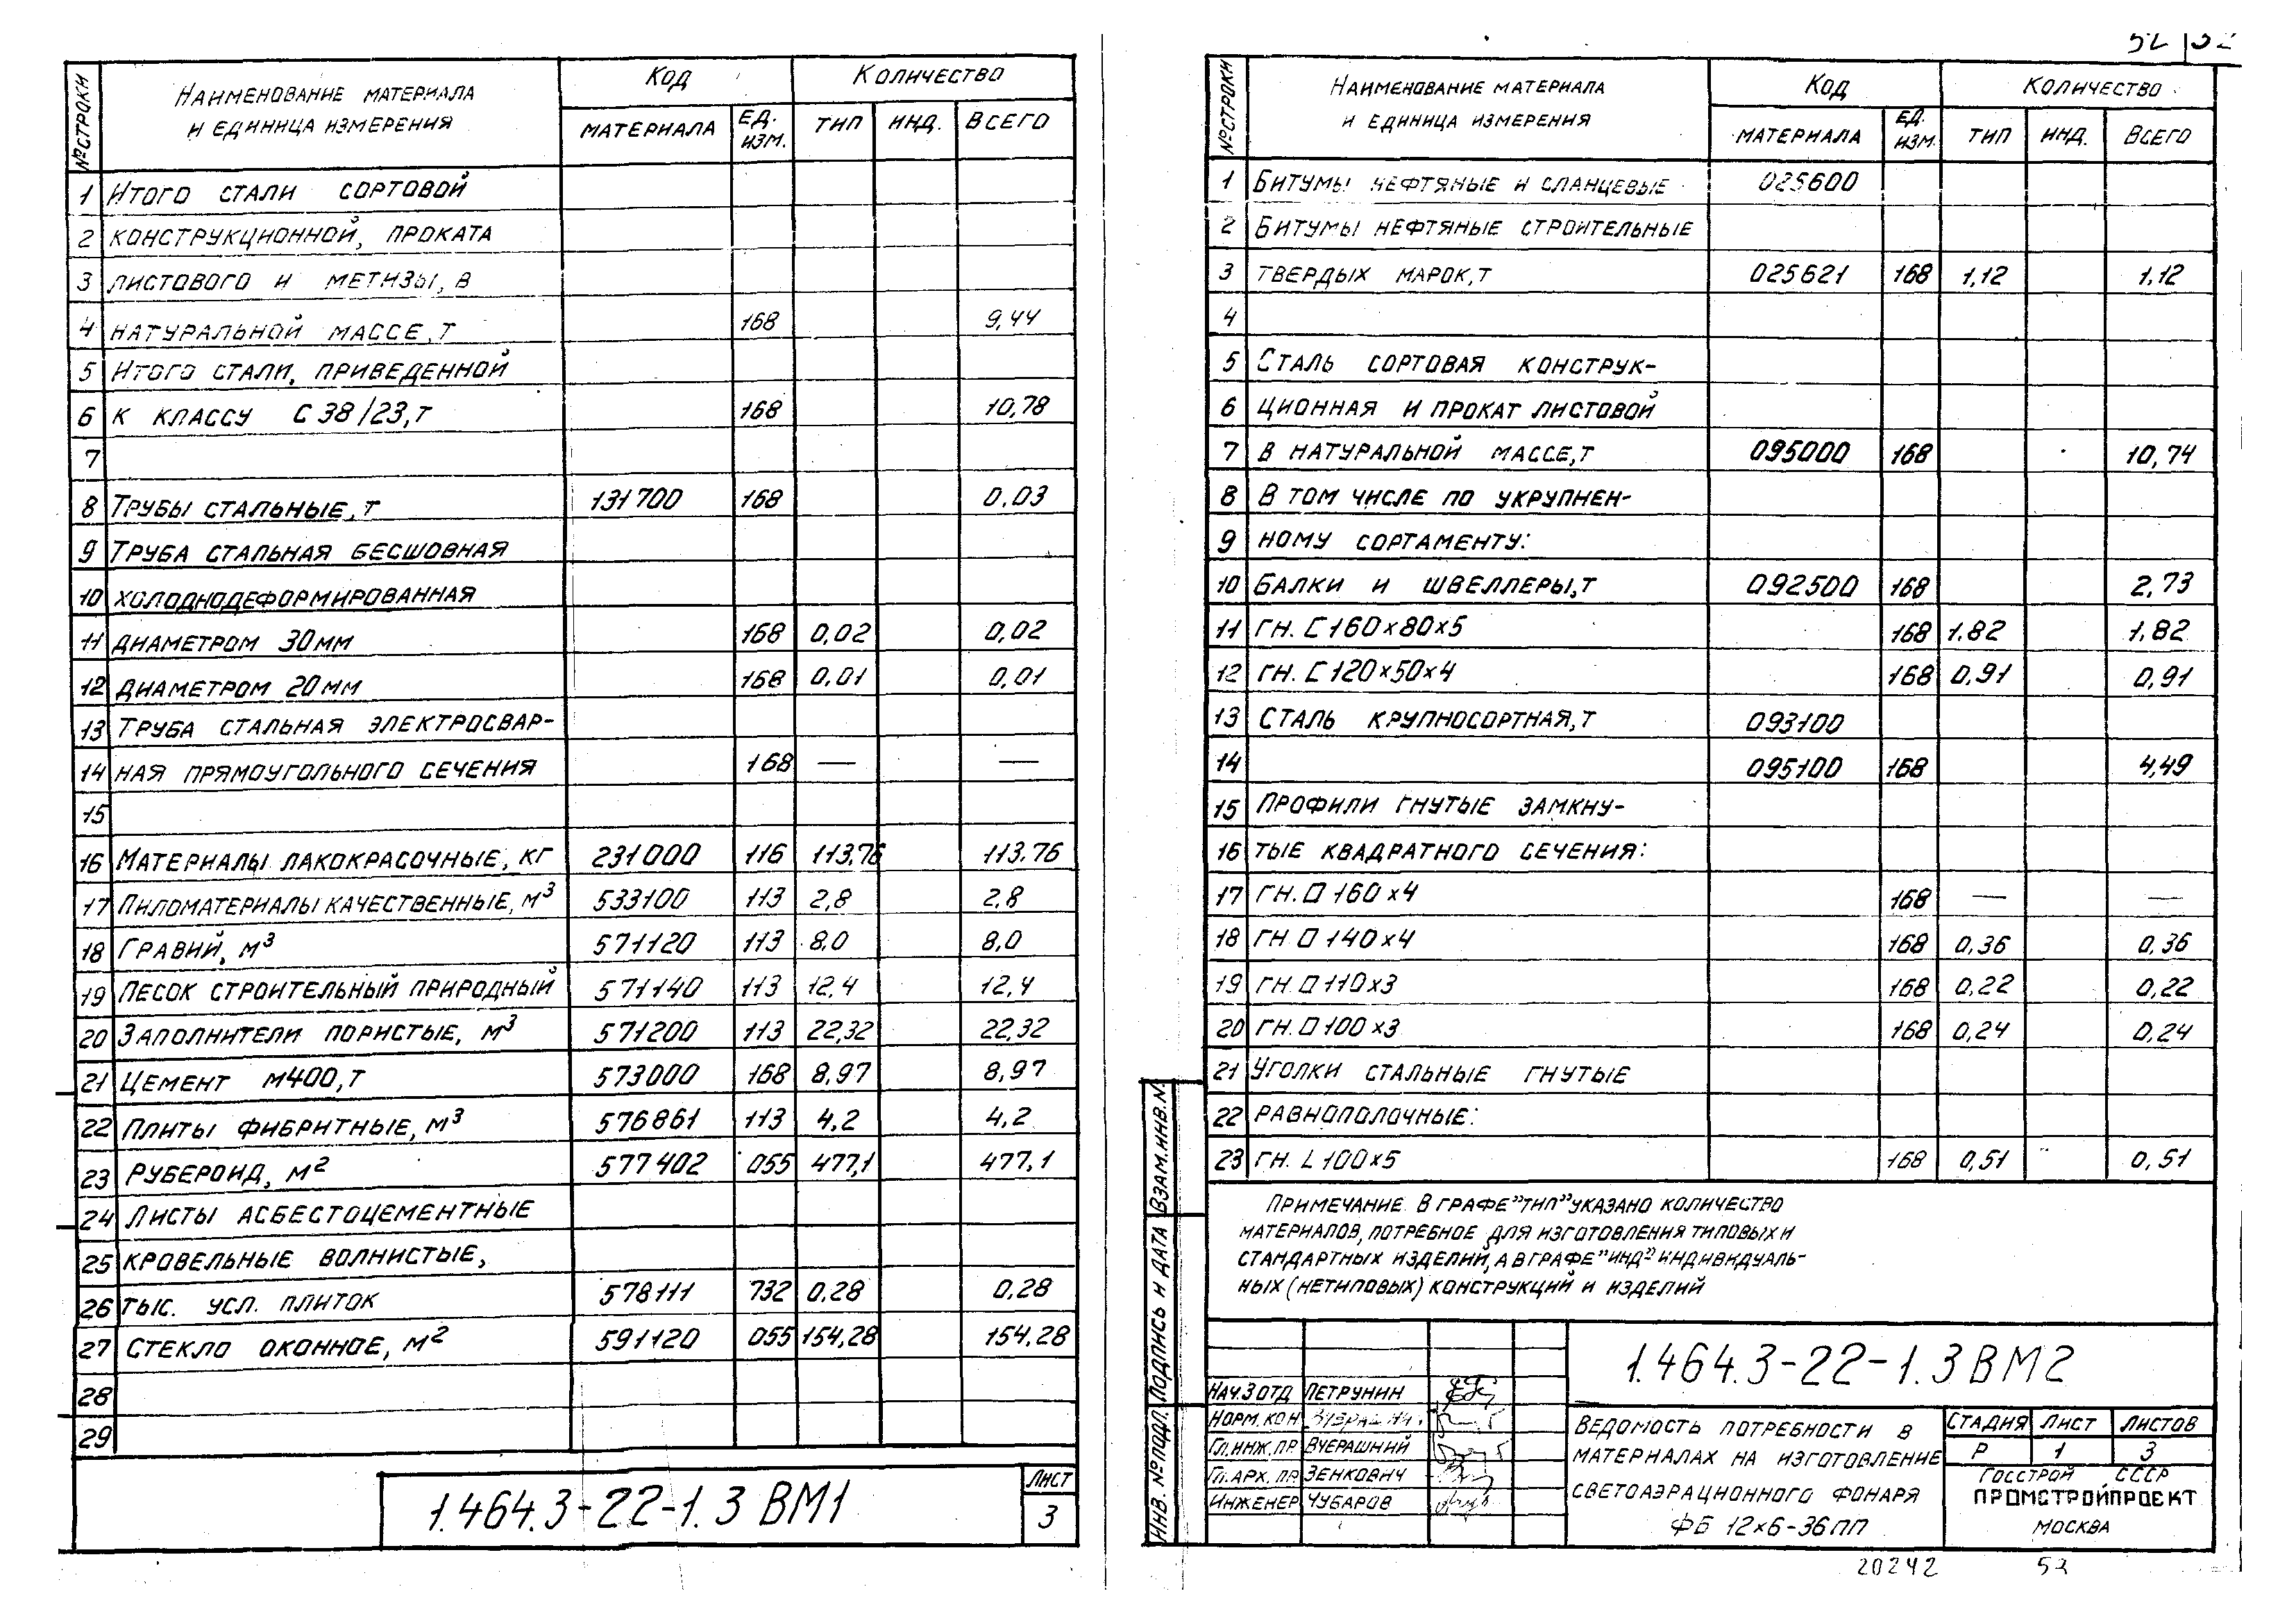 № СТРОКИ НАИМЕНОВАНИЕ МАТЕРИАЛА И ЕДИНИЦА ИЗМЕРЕНИЯ КОД КОЛИЧЕСТВО
МАТЕРИАЛА ЕД. ИЗМ. ТИП ИНД. ВСЕГО
1 ИТОГО СТАЛИ СОРТОВОЙ
2 КОНСТРУКЦИОННОЙ, ПРОКАТА
3 ЛИСТОВОГО И МЕТИЗЫ, В
4 НАТУРАЛЬНОЙ МАССЕ, Т 168 9,44
5 ИТОГО СТАЛИ, ПРИВЕДЕННОЙ
6 К КЛАССУ С 38/23, Т 168 10,78
7
8 ТРУБЫ СТАЛЬНЫЕ, Т 131700 168 0,03
9 ТРУБА СТАЛЬНАЯ БЕСШОВНАЯ
10 ХОЛОДНОДЕФОРМИРОВАННАЯ
11 ДИАМЕТРОМ 30 ММ 168 0,02 0,02
12 ДИАМЕТРОМ 20 ММ 168 0,01 0,01
13 ТРУБА СТАЛЬНАЯ ЭЛЕКТРОСВАР-
14 НАЯ ПРЯМОУГОЛЬНОГО СЕЧЕНИЯ 168 — —
15
16 МАТЕРИАЛЫ ЛАКОКРАСОЧНЫЕ, КГ 231000 116 113,76 113,76
17 ПИЛОМАТЕРИАЛЫ КАЧЕСТВЕННЫЕ, М³ 533100 113 2,8 2,8
18 ГРАВИЙ, М³ 571120 113 8,0 8,0
19 ПЕСОК СТРОИТЕЛЬНЫЙ ПРИРОДНЫЙ 571140 113 12,4 12,4
20 ЗАПОЛНИТЕЛИ ПОРИСТЫЕ, М³ 571200 113 22,32 22,32
21 ЦЕМЕНТ М400, Т 573000 168 8,97 8,97
22 ПЛИТЫ ФИБРИТНЫЕ, М³ 576861 113 4,2 4,2
23 РУБЕРОИД, М² 577402 055 477,1 477,1
24 ЛИСТЫ АСБЕСТОЦЕМЕНТНЫЕ
25 КРОВЕЛЬНЫЕ ВОЛНИСТЫЕ,
26 ТЫС. УСЛ. ПЛИТОК 578111 732 0,28 0,28
27 СТЕКЛО ОКОННОЕ, М² 591120 055 154,28 154,28
28
29
1.464.3-22-1.3 ВМ1
ЛИСТ
3
№ СТРОКИ НАИМЕНОВАНИЕ МАТЕРИАЛА И ЕДИНИЦА ИЗМЕРЕНИЯ КОД КОЛИЧЕСТВО
МАТЕРИАЛА ЕД. ИЗМ. ТИП ИНД. ВСЕГО
1 БИТУМЫ НЕФТЯНЫЕ И СЛАНЦЕВЫЕ 025600
2 БИТУМЫ НЕФТЯНЫЕ СТРОИТЕЛЬНЫЕ
3 ТВЕРДЫХ МАРОК, Т 025621 168 1,12 1,12
4
5 СТАЛЬ СОРТОВАЯ КОНСТРУК-
6 ЦИОННАЯ И ПРОКАТ ЛИСТОВОЙ
7 В НАТУРАЛЬНОЙ МАССЕ, Т 095000 168 10,74
8 В ТОМ ЧИСЛЕ ПО УКРУПНЕН-
9 НОМУ СОРТАМЕНТУ:
10 БАЛКИ И ШВЕЛЛЕРЫ, Т 092500 168 2,73
11 ГН. [ 160×80×5 168 1,82 1,82
12 ГН. [ 120×50×4 168 0,91 0,91
13 СТАЛЬ КРУПНОСОРТНАЯ, Т 093100
14 095100 168 4,49
15 ПРОФИЛИ ГНУТЫЕ ЗАМКНУ-
16 ТЫЕ КВАДРАТНОГО СЕЧЕНИЯ:
17 ГН. □ 160×4 168 — —
18 ГН. □ 140×4 168 0,36 0,36
19 ГН. □ 110×3 168 0,22 0,22
20 ГН. □ 100×3 168 0,24 0,24
21 УГОЛКИ СТАЛЬНЫЕ ГНУТЫЕ
22 РАВНОПОЛОЧНЫЕ:
23 ГН. L 100×5 168 0,51 0,51
ПРИМЕЧАНИЕ. В ГРАФЕ "ТИП" УКАЗАНО КОЛИЧЕСТВО
МАТЕРИАЛОВ, ПОТРЕБНОЕ ДЛЯ ИЗГОТОВЛЕНИЯ ТИПОВЫХ И
СТАНДАРТНЫХ ИЗДЕЛИЙ, А В ГРАФЕ "ИНД" ИНДИВИДУАЛЬ-
НЫХ (НЕТИПОВЫХ) КОНСТРУКЦИЙ И ИЗДЕЛИЙ
ИНВ. № ПОДЛ. ПОДПИСЬ И ДАТА ВЗАМ. ИНВ. №
1.464.3-22-1.3 ВМ2
НАЧ.З ОТД ПЕТРУНИН
НОРМ. КОН.
ГЛ. ИНЖ. ПР. ВЧЕРАШНИЙ
ГЛ. АРХ. ПР ЗЕНКОВИЧ
ИНЖЕНЕР ЧУБАРОВ
ВЕДОМОСТЬ ПОТРЕБНОСТИ В
МАТЕРИАЛАХ НА ИЗГОТОВЛЕНИЕ
СВЕТОАЭРАЦИОННОГО ФОНАРЯ
ФБ 12×6-36ПП
СТАДИЯ ЛИСТ ЛИСТОВ
Р 1 3
ГОССТРОЙ СССР
ПРОМСТРОЙПРОЕКТ
МОСКВА
20242